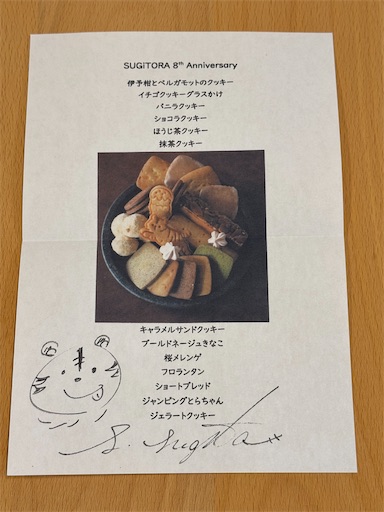 SUGiTORA 8th Anniversary
伊予柑とベルガモットのクッキー
イチゴクッキーグラスかけ
バニラクッキー
ショコラクッキー
ほうじ茶クッキー
抹茶クッキー
キャラメルサンドクッキー
ブールドネージュきなこ
桜メレンゲ
フロランタン
ショートブレッド
ジャンピングとらちゃん
ジェラートクッキー
S. Sugita